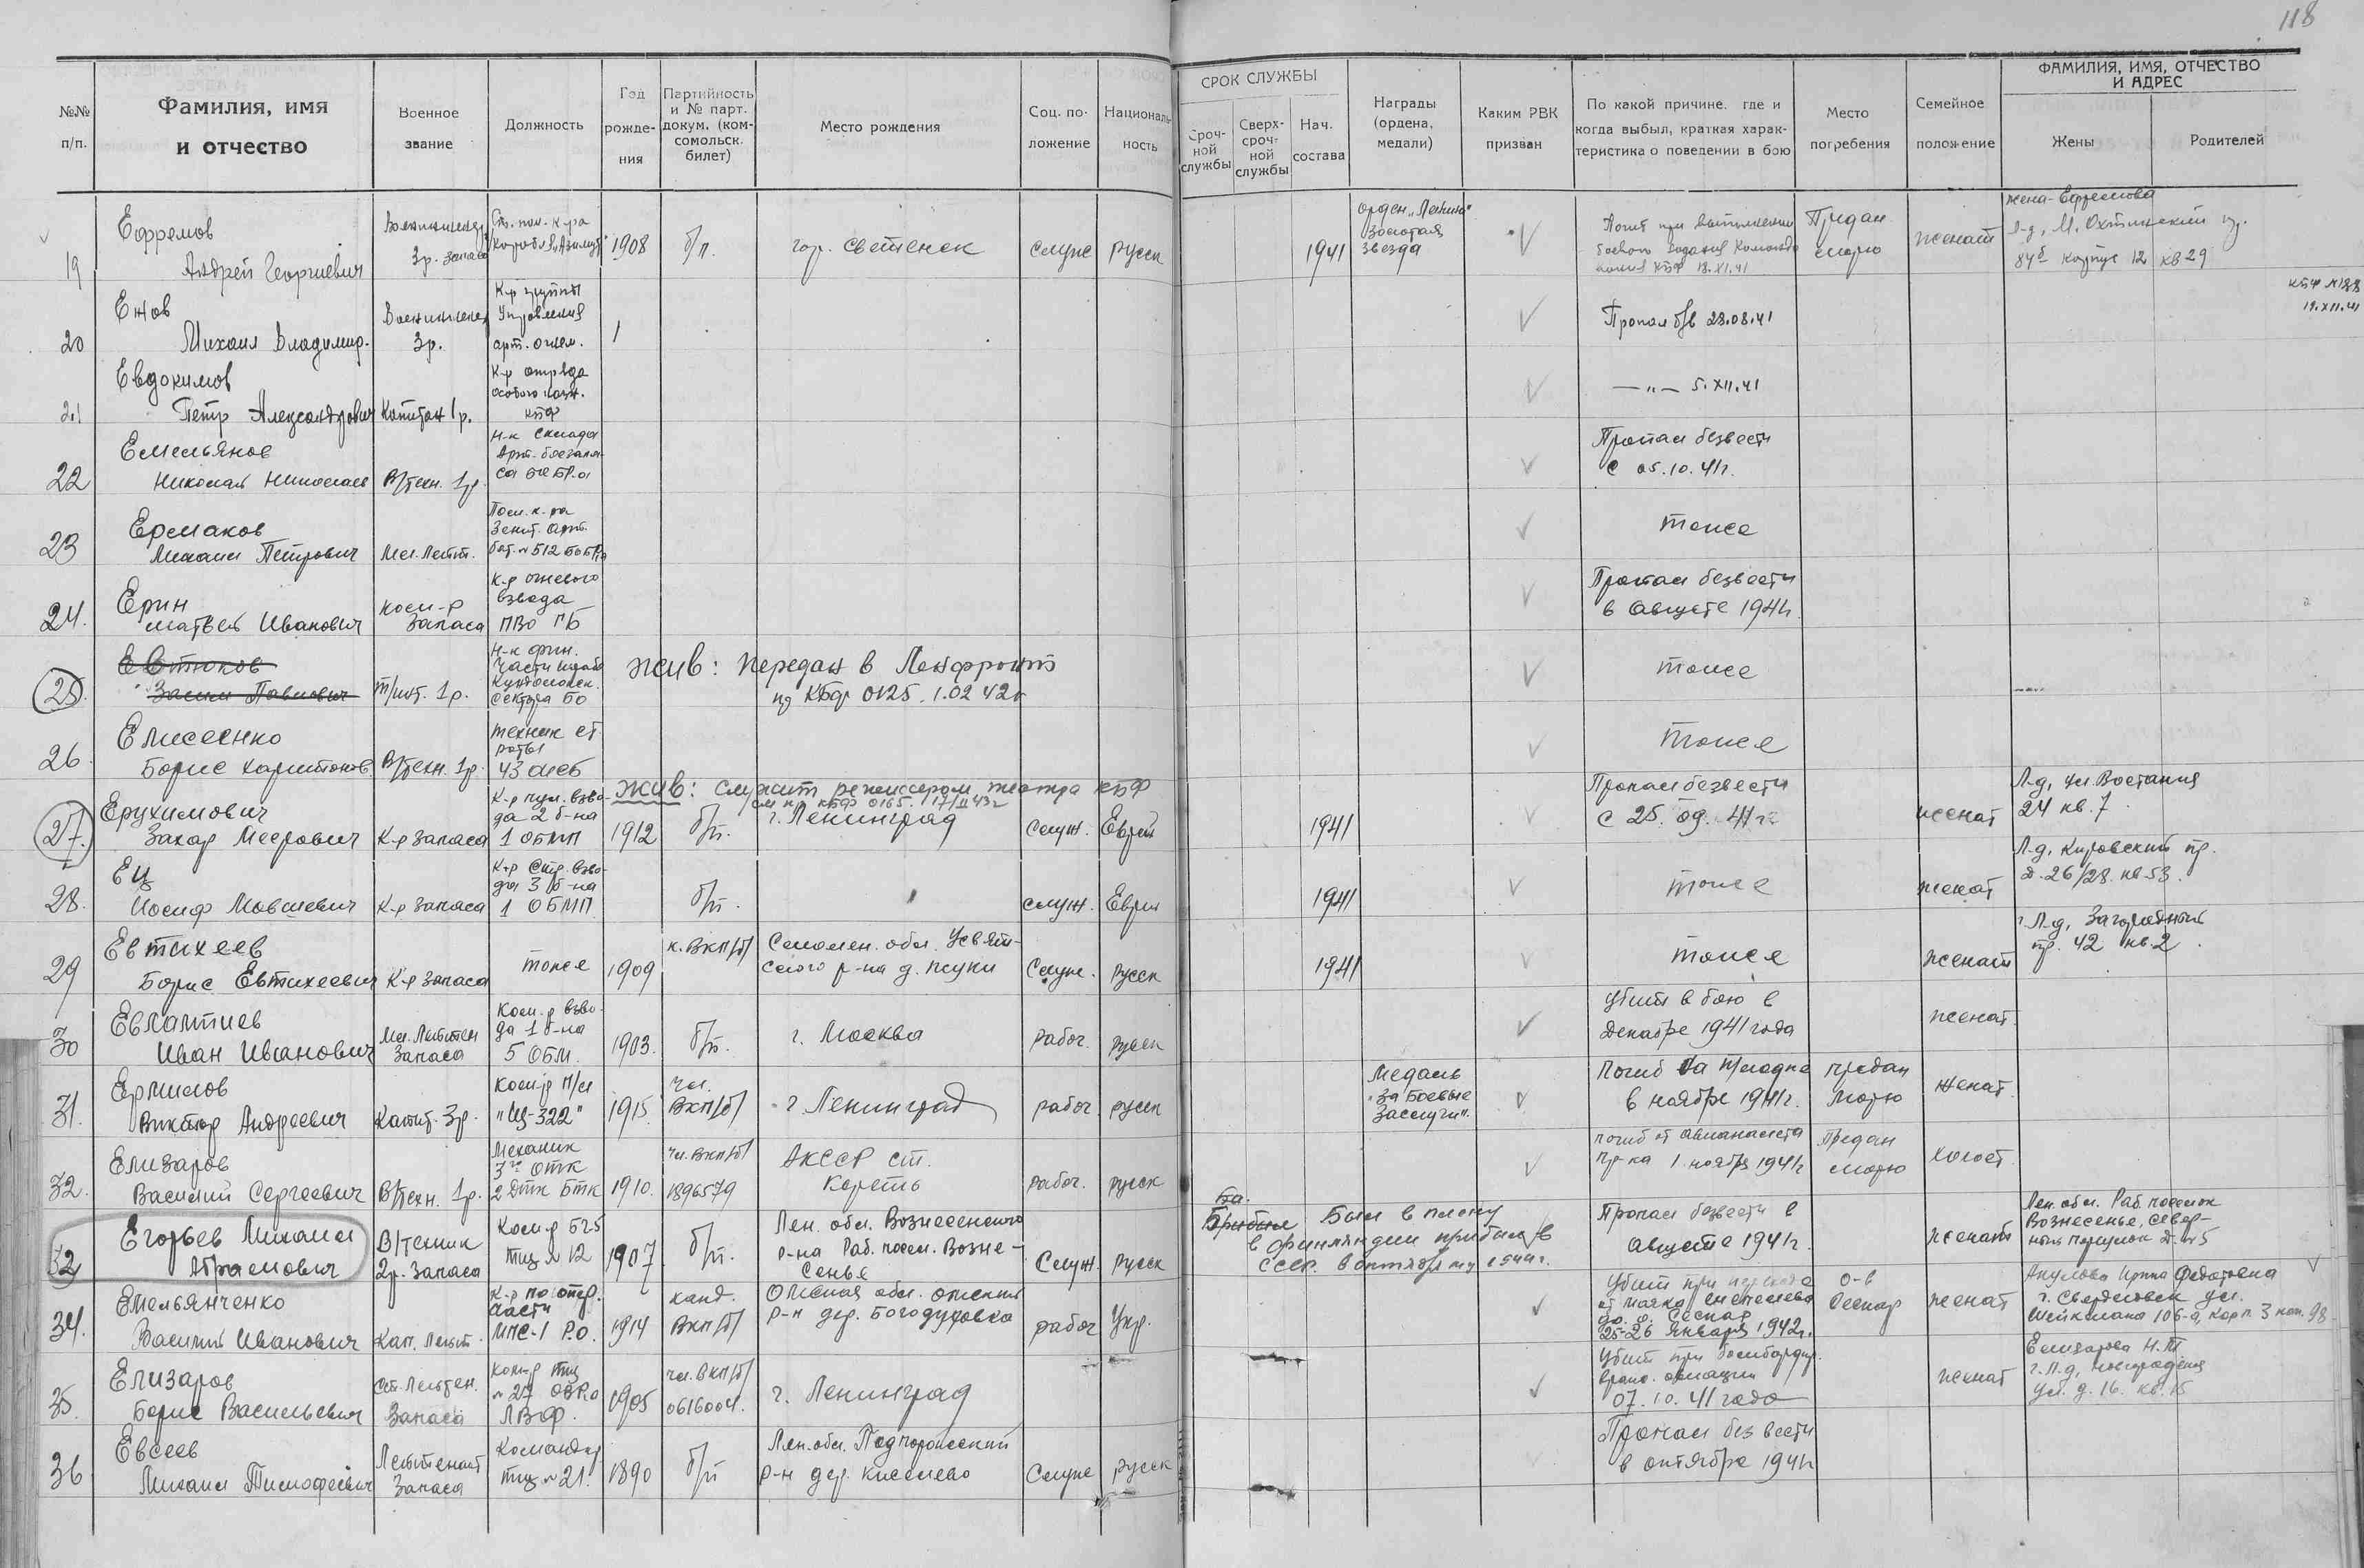 118
№№ п/п.
Фамилия, имя и отчество
Военное звание
Должность
Год рожде-ния
Партийность и № парт. докум. (ком-сомольск. билет)
Место рождения
Соц. по-ложение
Националь-ность
СРОК СЛУЖБЫ
Сроч-ной службы
Сверх-сроч-ной службы
Нач. состава
Награды (ордена, медали)
Каким РВК призван
По какой причине, где и когда выбыл, краткая харак-теристика о поведении в бою
Место погребения
Семейное положение
ФАМИЛИЯ, ИМЯ, ОТЧЕСТВО И АДРЕС
Жены
Родителей
19
Ефремов
Андрей Георгиевич
3р. запаса
1908
б/п.
служ
русск
1941
орден „Ленина"
Золотая
звезда
Погиб при выполнении
боевого задания Командо
КБФ 18.XI.41
Предан
морю
женат
жена-Ефремова
Л-д, М. Охтинский пр.
84б корпус 12 кв 29
19.XII.41
20
Ежов
Михаил Владимир.
3р.
К-р группы
Управления
арт. огнем.
Пропал б/в 28.08.41
21
Евдокимов
Петр Александрович
Капитан 1р.
К-р отряда
особого назн.
КБФ
—„— 5.XII.41
22
Емельянов
Николай Николаев
В/техн. 1р.
Н-к склада
Арт. боезапа-
са
Пропал безвести
с 05.10.41г.
23
Ермаков
Михаил Петрович
Мл. Лейт.
Пом. к-ра
Зенит. арт.
бат. № 512
тоже
24.
Ерин
Матвей Иванович
ком-р
Запаса
К-р огневого
взвода
ПВО ГБ
Пропал безвести
в Августе 1941г.
25.
Евтюков
Павлович
1р.
Н-к фин.
части штаба
сектора БО
жив: передан в Ленфронт
пр КБФ 0125. 1.02 42г
тоже
26.
Елисеенко
Борис Харитонов
В/техн. 1р.
техник ст.
роты
тоже
27.
Ерухимович
Захар Меерович
К-р запаса
К-р пул. взво-
да 2 б-на
1 ОБМП
1912
б/п.
жив: служит режиссером театра КБФ
см пр КБФ 0165. 17/II 43г
г. Ленинград
служ.
Еврей
1941
Пропал безвести
с 25.09.41г
женат
Л-д, ул. Востания
24 кв. 7
28.
Ец
Иосиф Мовшевич
К-р запаса
К-р стр. взво-
да 3 б-на
1 ОБМП
б/п.
служ.
Еврей
1941
тоже
женат
Л-д, Кировский пр.
д. 26/28. кв 53.
29
Евтихеев
Борис Евтихеевич
К-р запаса
тоже
1909
к. ВКП/б/
Смолен. обл. Усвят-
ского р-на д.
Служ.
русск
1941
тоже
женат
г. Л-д, Загородный
пр. 42 кв. 2.
30
Евлампиев
Иван Иванович
Мл. Лейтен
Запаса
Ком-р взво-
да 1 б-на
5 ОБМ.
1903.
б/п.
г. Москва
рабоч.
русск
убит в бою в
декабре 1941 года
женат.
31.
Ермилов
Виктор Андреевич
Капит. 3р.
Ком-р п/л
"Щ-322"
1915
чл.
ВКП/б/
г Ленинград
рабоч
русск
Медаль
"За Боевые
Заслуги".
Погиб на п/лодке
в ноябре 1941г.
предан
морю
Женат.
32.
Елизаров
Василий Сергеевич
В/техн. 1р.
Механик
3го ОТК
2 ДТК БТК
1910.
чл. ВКП/б/
1896579
АКССР ст.
Кереть
рабоч.
русск
погиб от авианалета
пр-ка 1 ноября 1941г
Предан
морю
холост
32
Егорьев Михаил
Абрамович
В/техник
2р. Запаса
Ком-р БЧ5
ТЩ № 12
1907
б/п.
Лен. обл. Вознесенского
р-на Раб. посел. Возне-
сенье
Служ.
русск
Был в плену
в Финляндии прибыл в
СССР. в октябре м-це 1944г.
Пропал безвести в
Августе 1941г.
женат
Лен. обл. Раб. поселок
Вознесенье, север-
ный переулок д. №5
34.
Емельянченко
Василий Иванович
Кап. Лейт.
К-р по опер.
части
1914
канд.
ВКП/б/
Омская обл. омский
р-н дер. Богодуховка
рабоч
Укр.
убит при переходе
от маяка Шепелева
до о. Сескар
25-26 января 1942г.
о-в
Сескар
женат
Акулова Ирина Федотовна
г. Свердловск ул.
Шейкмана 106-а, корп 3 ком. 98
35.
Елизаров
Борис Васильевич
Ст. Лейтен.
Запаса
Ком-р тщ
№ 27 ОВРа
ЛВФ.
1905
чл. ВКП/б/
0616004.
г. Ленинград
убит при бомбардир.
враж. авиации
07.10.41 года
женат
Елизарова Н.М
г. Л-д,
ул. д. 16. кв. 15
36
Евсеев
Михаил Тимофеевич
Лейтенант
Запаса
Командир
тщ № 21.
1890
б/п
Лен. обл. Подпорожский
р-н дер. Киселево
Служ
русск
Пропал без вести
в октябре 1941г